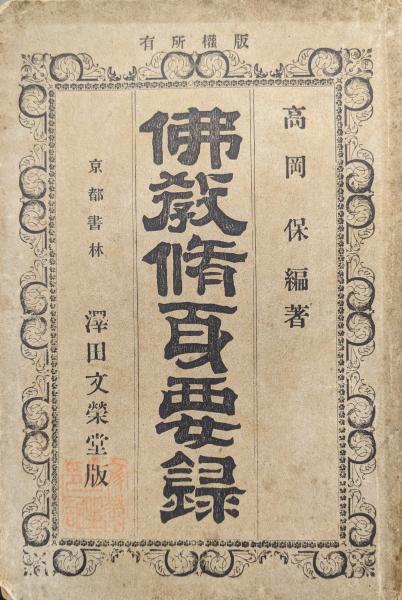 版權所有
高岡保編著
佛教脩身要録
京都書林 澤田文榮堂版